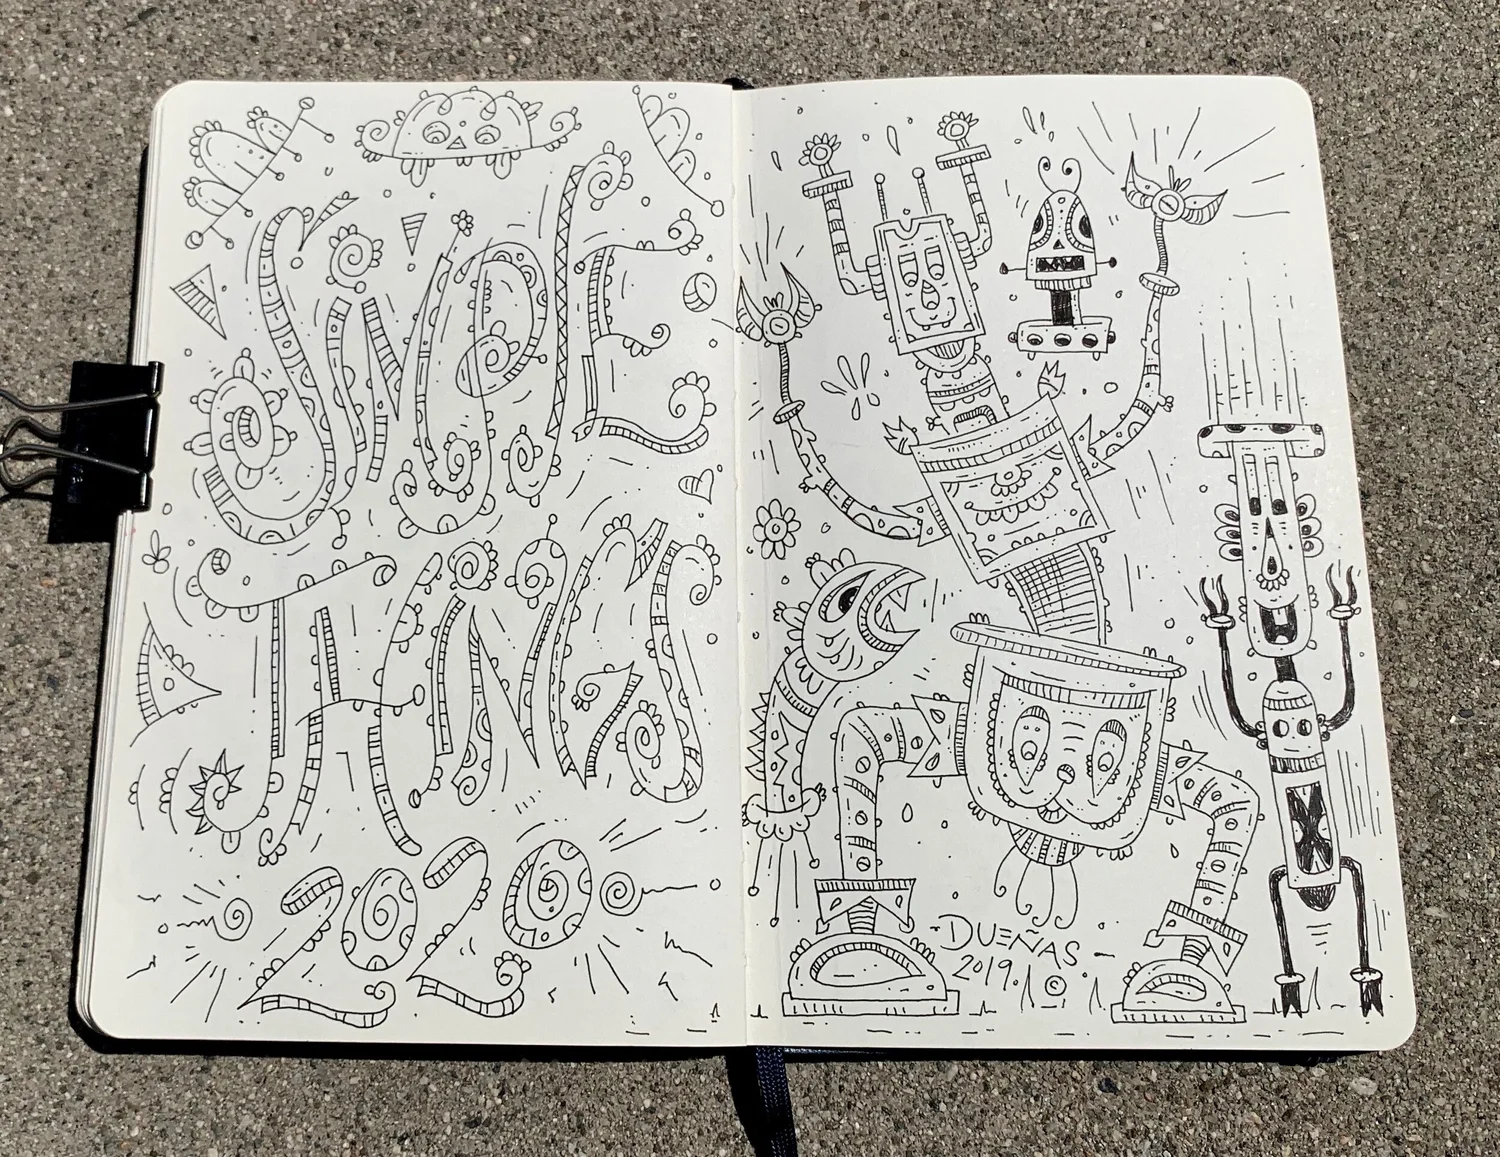 SiMPLE
THiNGS
2020
-DUEÑAS.-
2019. ©